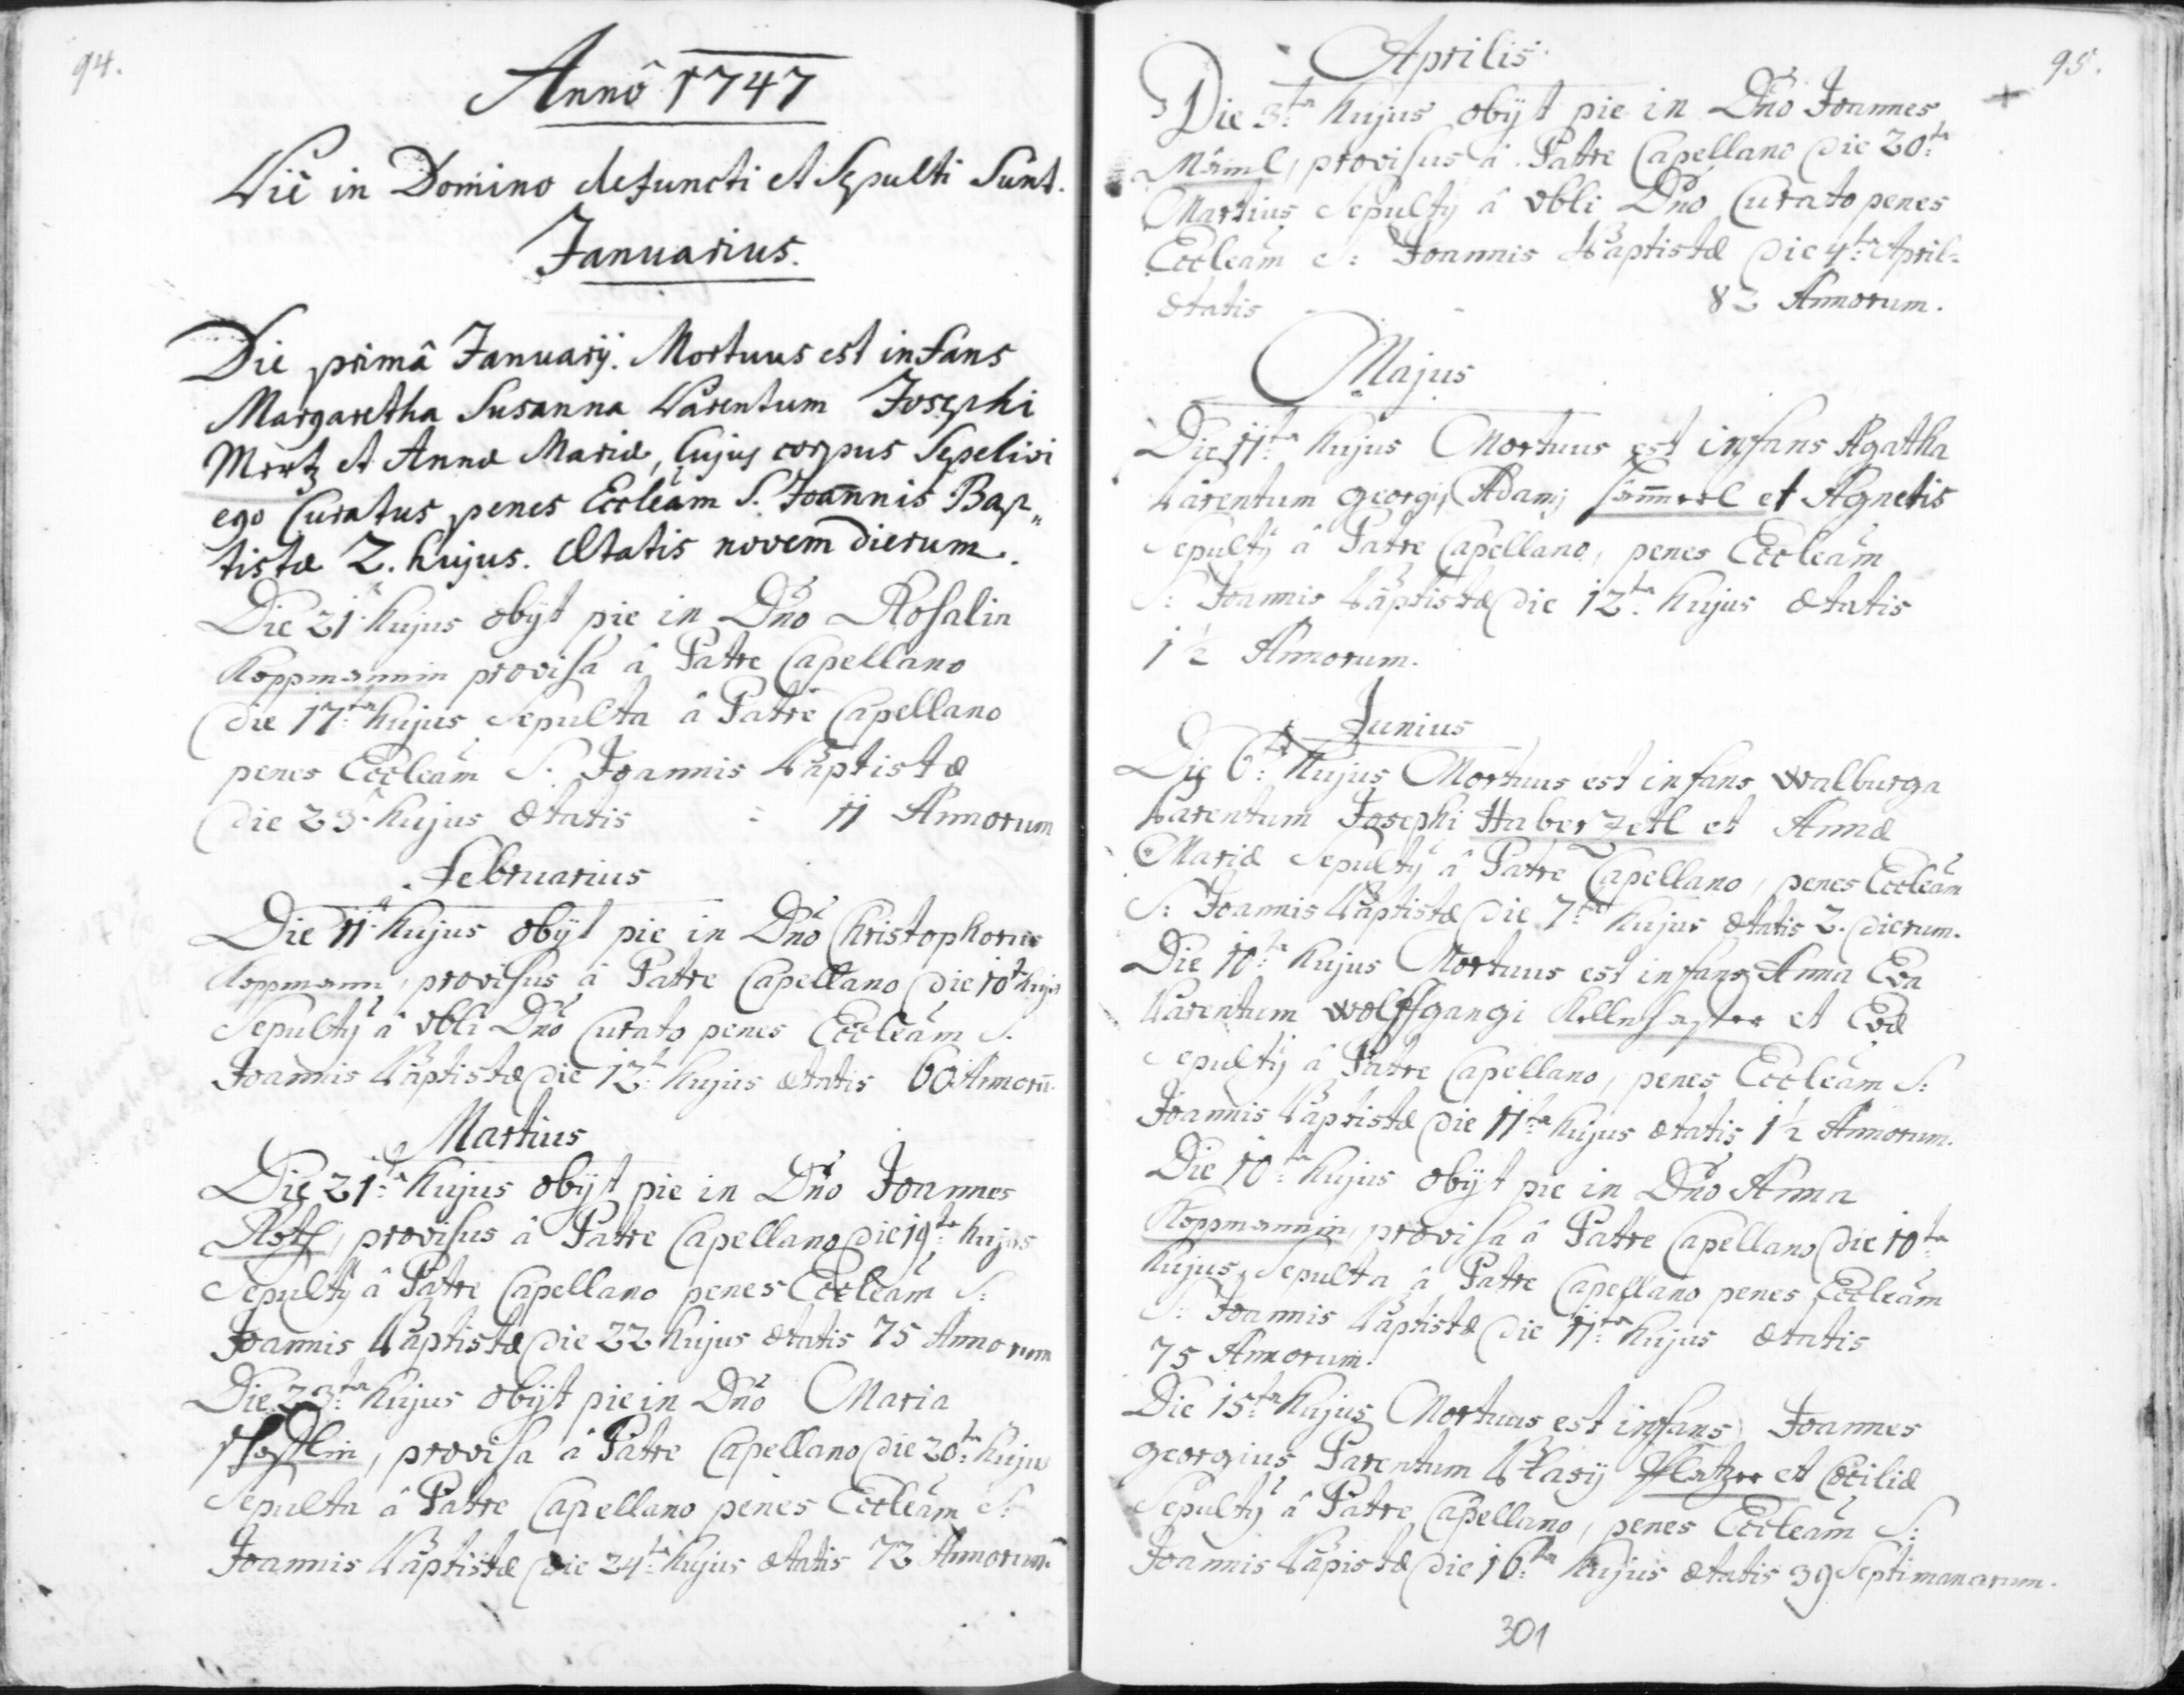 94.
Annô 1747
Piè in Domino defuncti et Sepulti Sunt.
Januarius.
Die primâ Januarij. Mortuus est infans
Margaretha Susanna Parentum Josephi
Mertz et Annæ Mariæ, Cujus corpus Sepelivi
ego Curatus penes Eccleam S. Joannis Bap„
tistæ 2. hujus. Ætatis novem dierum.
Die 21. hujus obijt pie in Dno Rosalia
Koppmannin provisa â Patre Capellano
die 17ta hujus Sepulta â Patre Capellano
penes Eccleam S. Joannis Baptistæ
die 23. hujus ætatis - 11 Annorum
Februarius
Die 11. hujus obijt pie in Dno Christophorus
Koppmann, provisus â Patre Capellano die 10t hujus
Sepulty â Dno Curato penes Eccleam S.
Joannis Baptistæ die 12t hujus ætatis 60 Annorū
Martius
Die 21ta hujus obijt pie in Dno Joannes
Roth, provisus â Patre Capellano die 19ta hujus
Sepulty â Patre Capellano penes Eccleam S:
Joannis Baptistæ die 22 hujus ætatis 75 Annorum
Die 23ta hujus obijt pie in Dno Maria
provisa â Patre Capellano die 20ta hujus
Sepulta â Patre Capellano penes Eccleam S:
Joannis Baptistæ die 24ta hujus ætatis 72 Annorum
95.
Aprilis
Die 3ta hujus obijt pie in Dno Joannes
provisus â Patre Capellano die 20ta
Martius Sepulty â Dno Curato penes
Eccleam S: Joannis Baptistæ die 4ta April:
ætatis - - 82 Annorum.
Majus
Die 11ta hujus Mortuus est infans Agatha
Parentum Georgij Adamj et Agnetis
Sepulty â Patre Capellano, penes Eccleam
S: Joannis Baptistæ die 12ta hujus ætatis
1½ Annorum.
Junius
Die 6ta hujus Mortuus est infans Walburga
Parentum Josephi Haberzetl et Annæ
Mariæ Sepulty â Patre Capellano, penes Eccleam
S: Joannis Baptistæ die 7ta hujus ætatis 2. dierum.
Die 10ta hujus Mortuus est infans Anna Eva
Parentum Wolffgangi et Evæ
Sepulty â Patre Capellano, penes Eccleam S:
Joannis Baptistæ die 11ta hujus ætatis 1½ Annorum.
Die 10ta hujus obijt pie in Dno Anna
Koppmannin, provisa â Patre Capellano die 10ta
hujus, Sepulta â Patre Capellano penes Eccleam
S: Joannis Baptistæ die 11ta hujus ætatis
75 Annorum.
Die 15ta hujus Mortuus est infans Joannes
Georgius Parentum Blasij Platzer et Cœciliæ
Sepulty â Patre Capellano, penes Eccleam S:
Joannis Bapistæ die 16ta hujus ætatis 39 Septimanarum.
301